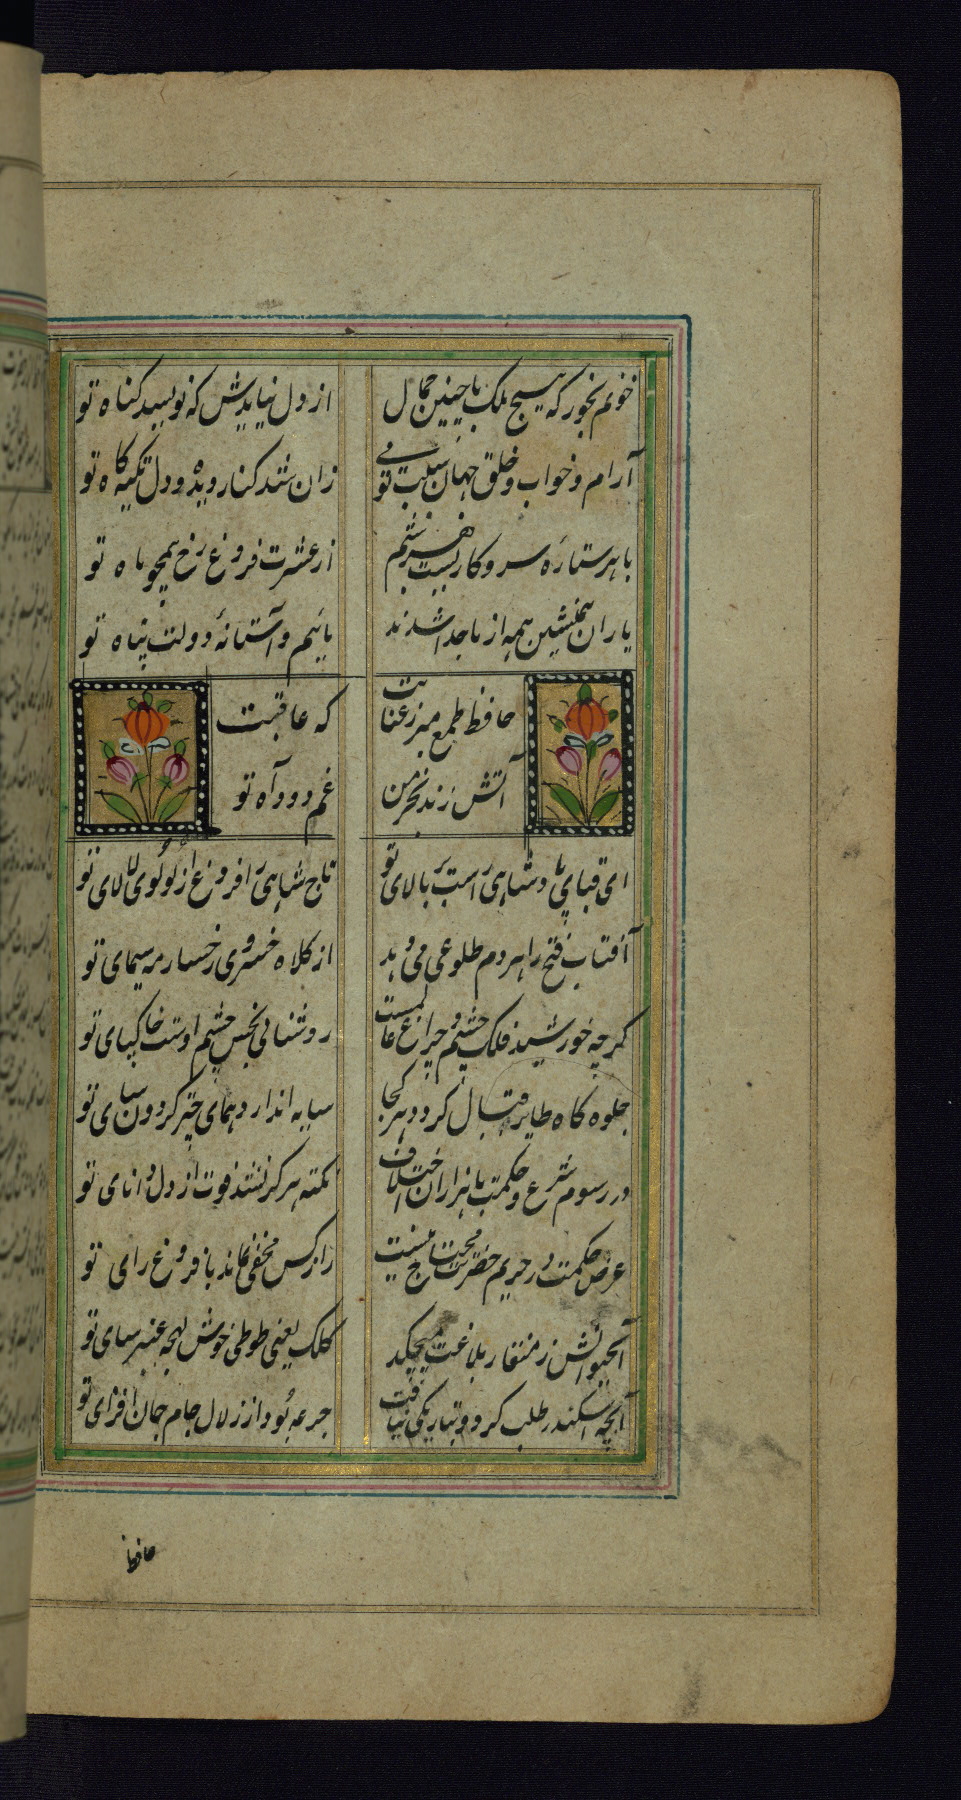 خونم بخور که هیچ ملک با چنین جمال
از دل نیایدش که نویسد گناه تو
آرام و خواب و خلق جهان را سبب تویی
زان شد کنار دیده و دل تکیه گاه تو
با هر ستاره سر و کار است هر شبم
از عشرت فروغ رخ همچو ماه تو
یاران همنشین همه از ما جدا شدند
مائیم و آستانهٔ دولت پناه تو
حافظ طمع مبر ز عنایت
که عاقبت
آتش زند بخرمن
غم دود آه تو
ای قبای پادشاهی راست بر بالای تو
تاج شاهی را فروغ از لولوی لالای تو
آفتاب فتح را هر دم طلوعی می دهد
از کلاه خسروی رخسار مه سیمای تو
گرچه خورشید فلک چشم و چراغ عالمست
روشنائی بخش چشم اوست خاک پای تو
جلوه گاه طایر اقبال گردد هر کجا
سایه اندازد همای چتر گردون سای تو
در رسوم شرع و حکمت با هزاران اختلاف
نکته هرگز نشد فوت از دل دانای تو
عرض حکمت در حریم حضرتت محتاج نیست
راز کس مخفی نماند با فروغ رای تو
آب حیوانش ز منقار بلاغت میچکد
کلک یعنی طوطی خوش لهجه عنبرسای تو
آنچه اسکندر طلب کرد و بتاریکی نیافت
جرعه بود از زلال جام جان افزای تو
حافظا